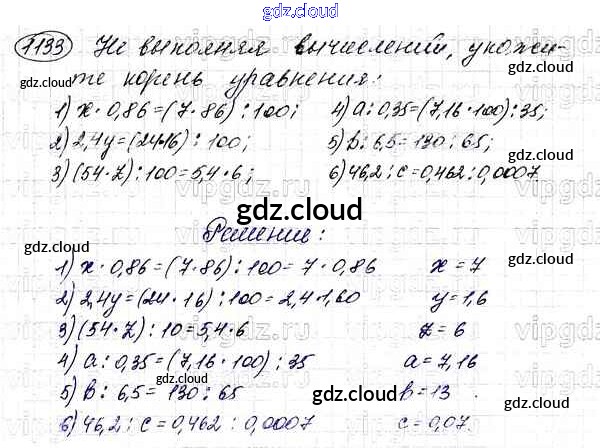 gdz.cloud
1133 Не выполняя вычислений, укажи-
gdz.cloud
те корень уравнения:
gdz.cloud
1) x · 0,86 = (7 · 86) : 100; 4) a : 0,35 = (7,16 · 100) : 35;
2) 2,4y = (24·16) : 100; 5) b : 6,5 = 130 : 65;
3) (54 · z) : 100 = 5,4 · 6; 6) 46,2 : c = 0,462 : 0,0007
vipgdz vipgdz vipgdz
gdz.cloud
gdz.cloud
Решение:
gdz.cloud
1) x · 0,86 = (7 · 86) : 100 = 7 · 0,86 x = 7
2) 2,4y = (24 · 16) : 100 = 2,4·1,60 y = 1,6
3) (54 · z) : 10 = 5,4 · 6 z = 6
4) a : 0,35 = (7,16 · 100) : 35 a = 7,16
5) b : 6,5 = 130 : 65 b = 13
gdz.cloud gdz.cloud
6) 46,2 : c = 0,462 : 0,0007 c = 0,07.
gdz.cloud